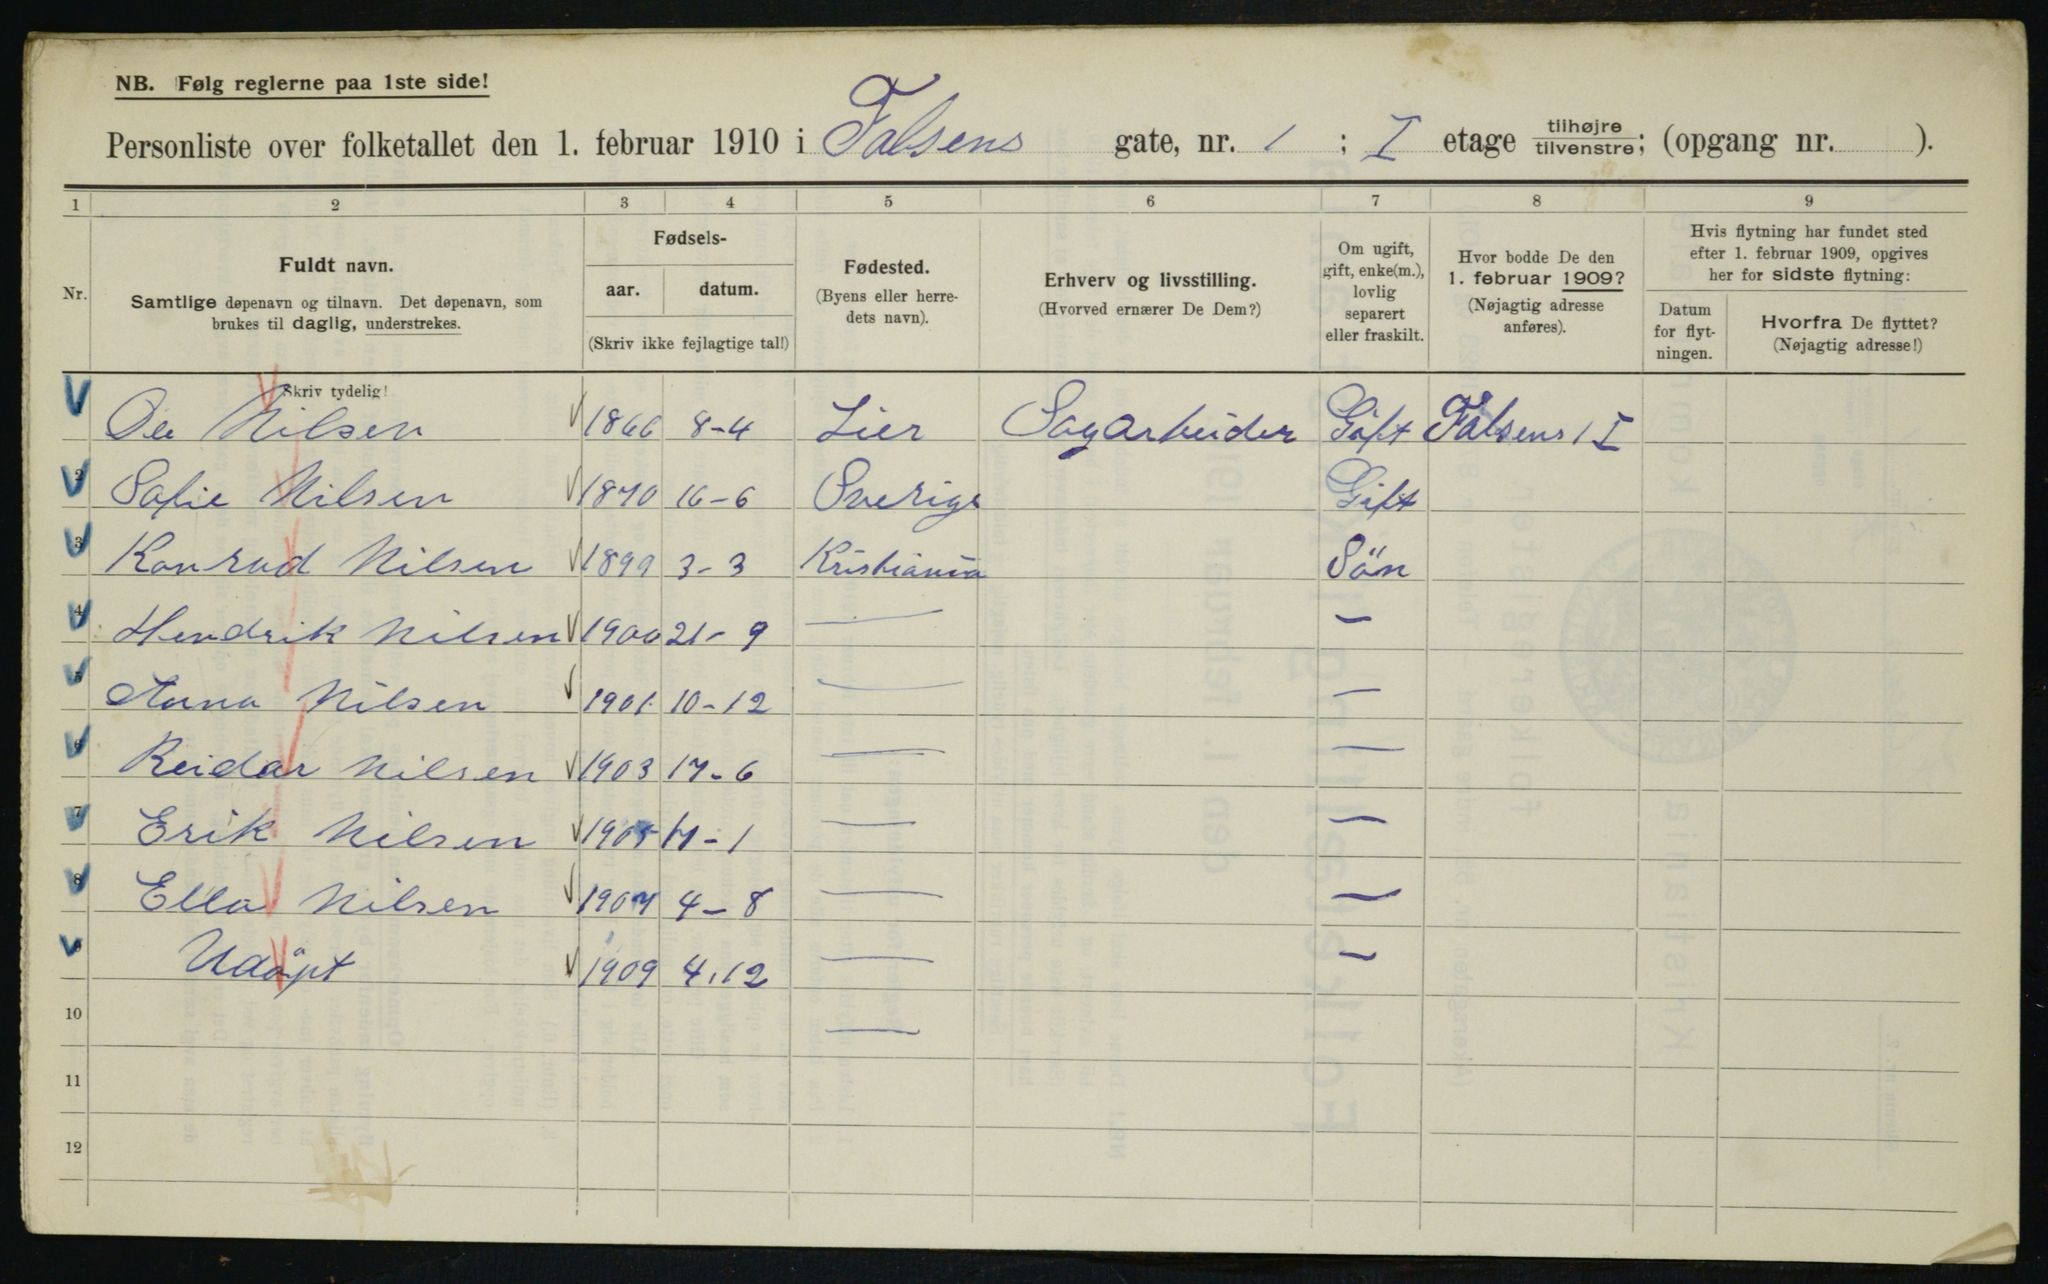 NB. Følg reglerne paa 1ste side!
Personliste over folketallet den 1. februar 1910 i Falsens gate, nr. 1 ; I etage tilhøjre tilvenstre; (opgang nr. ).
1 2 3 4 5 6 7 8 9
Nr.
Fuldt navn.
Samtlige døpenavn og tilnavn. Det døpenavn, som
brukes til daglig, understrekes.
Fødsels-
aar. datum.
(Skriv ikke fejlagtige tal!)
Fødested.
(Byens eller herre-
dets navn).
Erhverv og livsstilling.
(Hvorved ernærer De Dem?)
Om ugift,
gift, enke(m.),
lovlig
separert
eller fraskilt.
Hvor bodde De den
1. februar 1909?
(Nøjagtig adresse
anføres).
Hvis flytning har fundet sted
efter 1. februar 1909, opgives
her for sidste flytning:
Datum
for flyt-
ningen.
Hvorfra De flyttet?
(Nøjagtig adresse!)
Skriv tydelig!
Nilsen 1866 8-4 Lier Sagarbeider Gift Falsens 1 I
2 Sofie Nilsen 1870 16-6 Sverige Gift
3 Konrad Nilsen 1899 3-3 Kristiania Sön
4 Hendrik Nilsen 1900 21-9 — —
5 Anna Nilsen 1901 10-12 — —
6 Reidar Nilsen 1903 17-6 — —
7 Erik Nilsen 1905 17-1 — —
8 Ella Nilsen 1907 4-8 — —
9 Udöpt 1909 4.12 — —
10 —
11
12